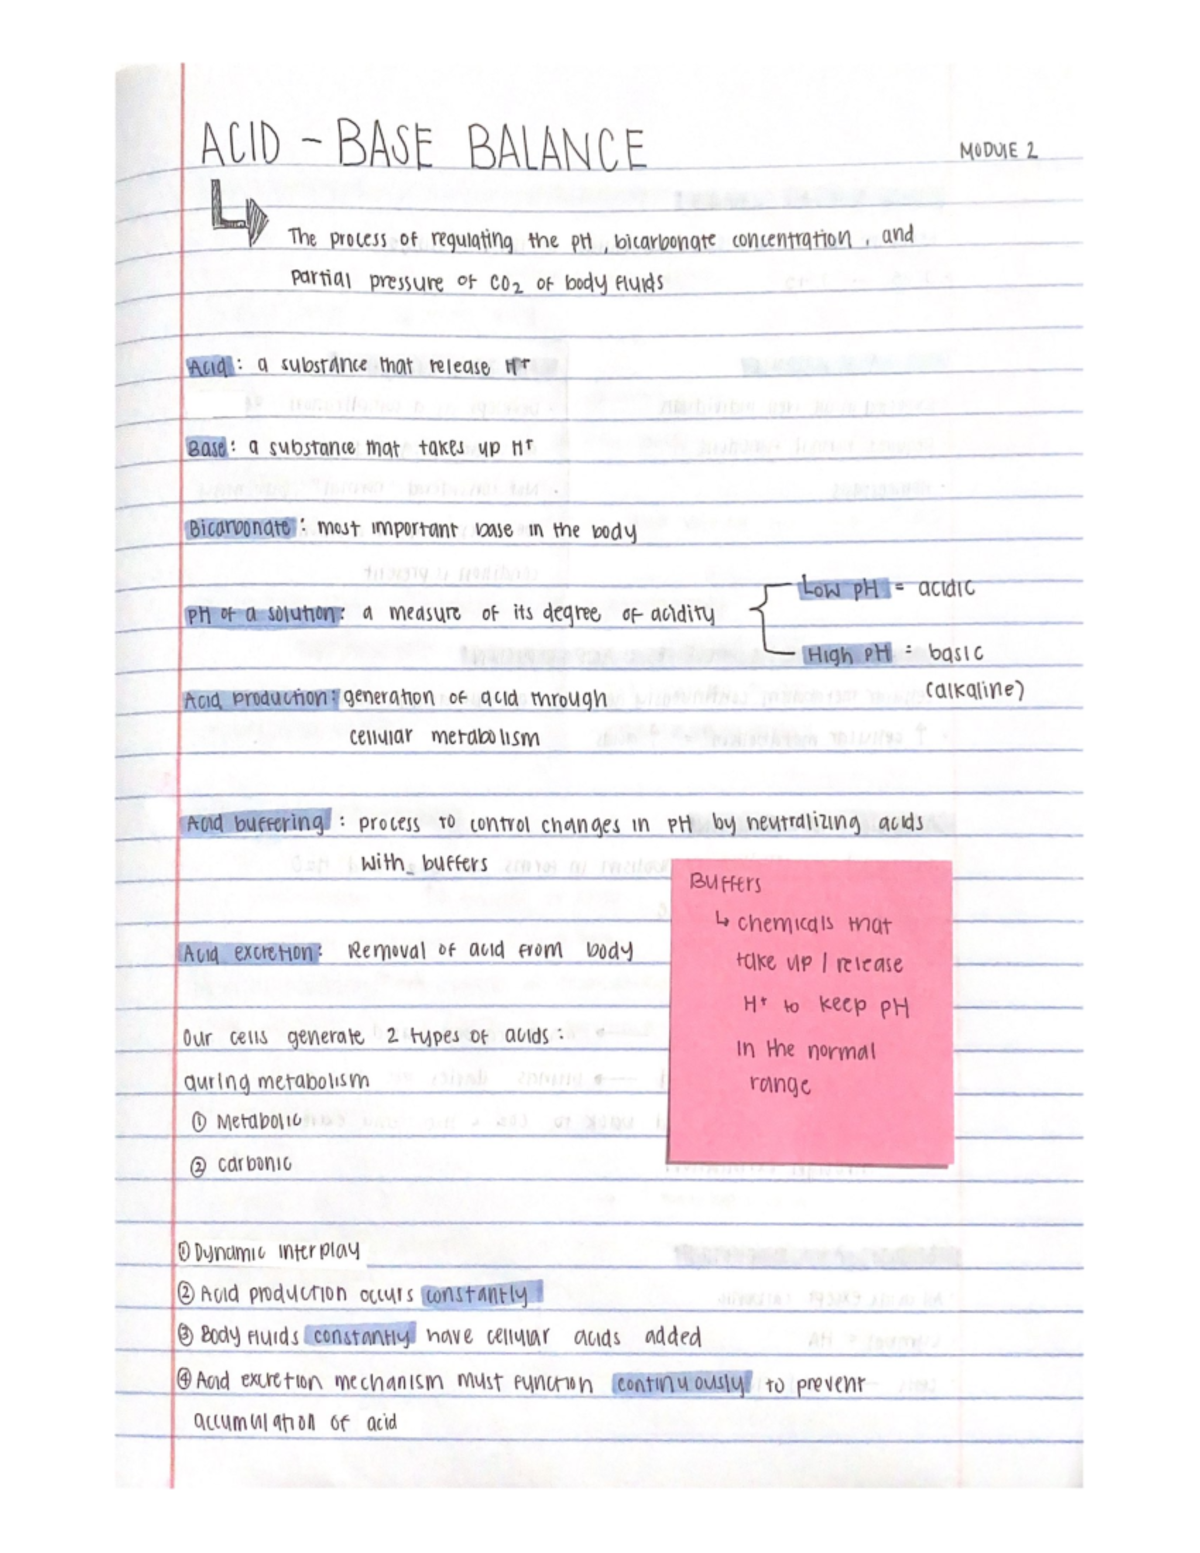 ACID - BASE BALANCE
MODULE 2
The process of regulating the pH, bicarbonate concentration, and
partial pressure of CO2 of body fluids
Acid: a substance that release H+
Base: a substance that takes up H+
Bicarbonate: most important base in the body
PH of a solution: a measure of its degree of acidity
Low pH = acidic
High PH = basic
(alkaline)
Acid production: generation of acid through
cellular metabolism
Acid buffering: process to control changes in PH by neutralizing acids
with buffers
Buffers
↳ chemicals that
take up / release
H+ to keep pH
in the normal
range
Acid excretion: Removal of acid from body
Our cells generate 2 types of acids:
during metabolism
① Metabolic
② carbonic
① Dynamic interplay
② Acid production occurs constantly
③ Body fluids constantly have cellular acids added
④ Acid excretion mechanism must function continuously to prevent
accumulation of acid